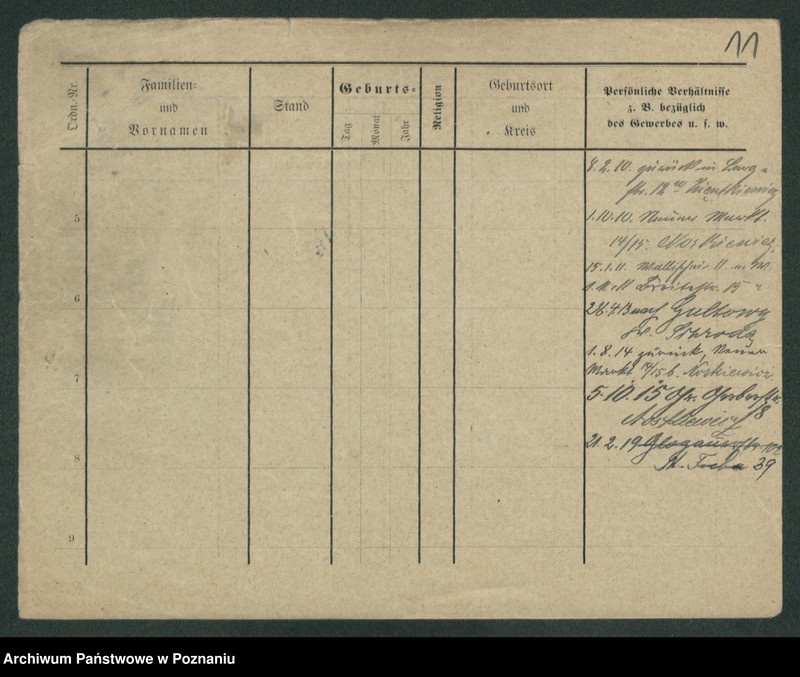 11
Ordn.-Nr.
Familien-
und
Vornamen
Stand
Geburts-
Tag
Monat
Jahr
Religion
Geburtsort
und
Kreis
Persönliche Verhältnisse
z. B. bezüglich
des Gewerbes u. s. w.
8.2.10. zurück in
str. 12
5
1.10.10. Neuer Markt
14/15. Noskiewicz
15.1.11. Wallischei 11
6
Breitestr. 15
26.4.13 nach Gultowy
Kr. Schroda
1.8.14 zurück, Neuer
7
Markt 14/15 b. Noskiewicz
5.10.15 Gr. Gerberstr.
18
Noskiewicz
21.2.19 Glogauerstr. 102
8
St. Focha 39
9
Archiwum Państwowe w Poznaniu